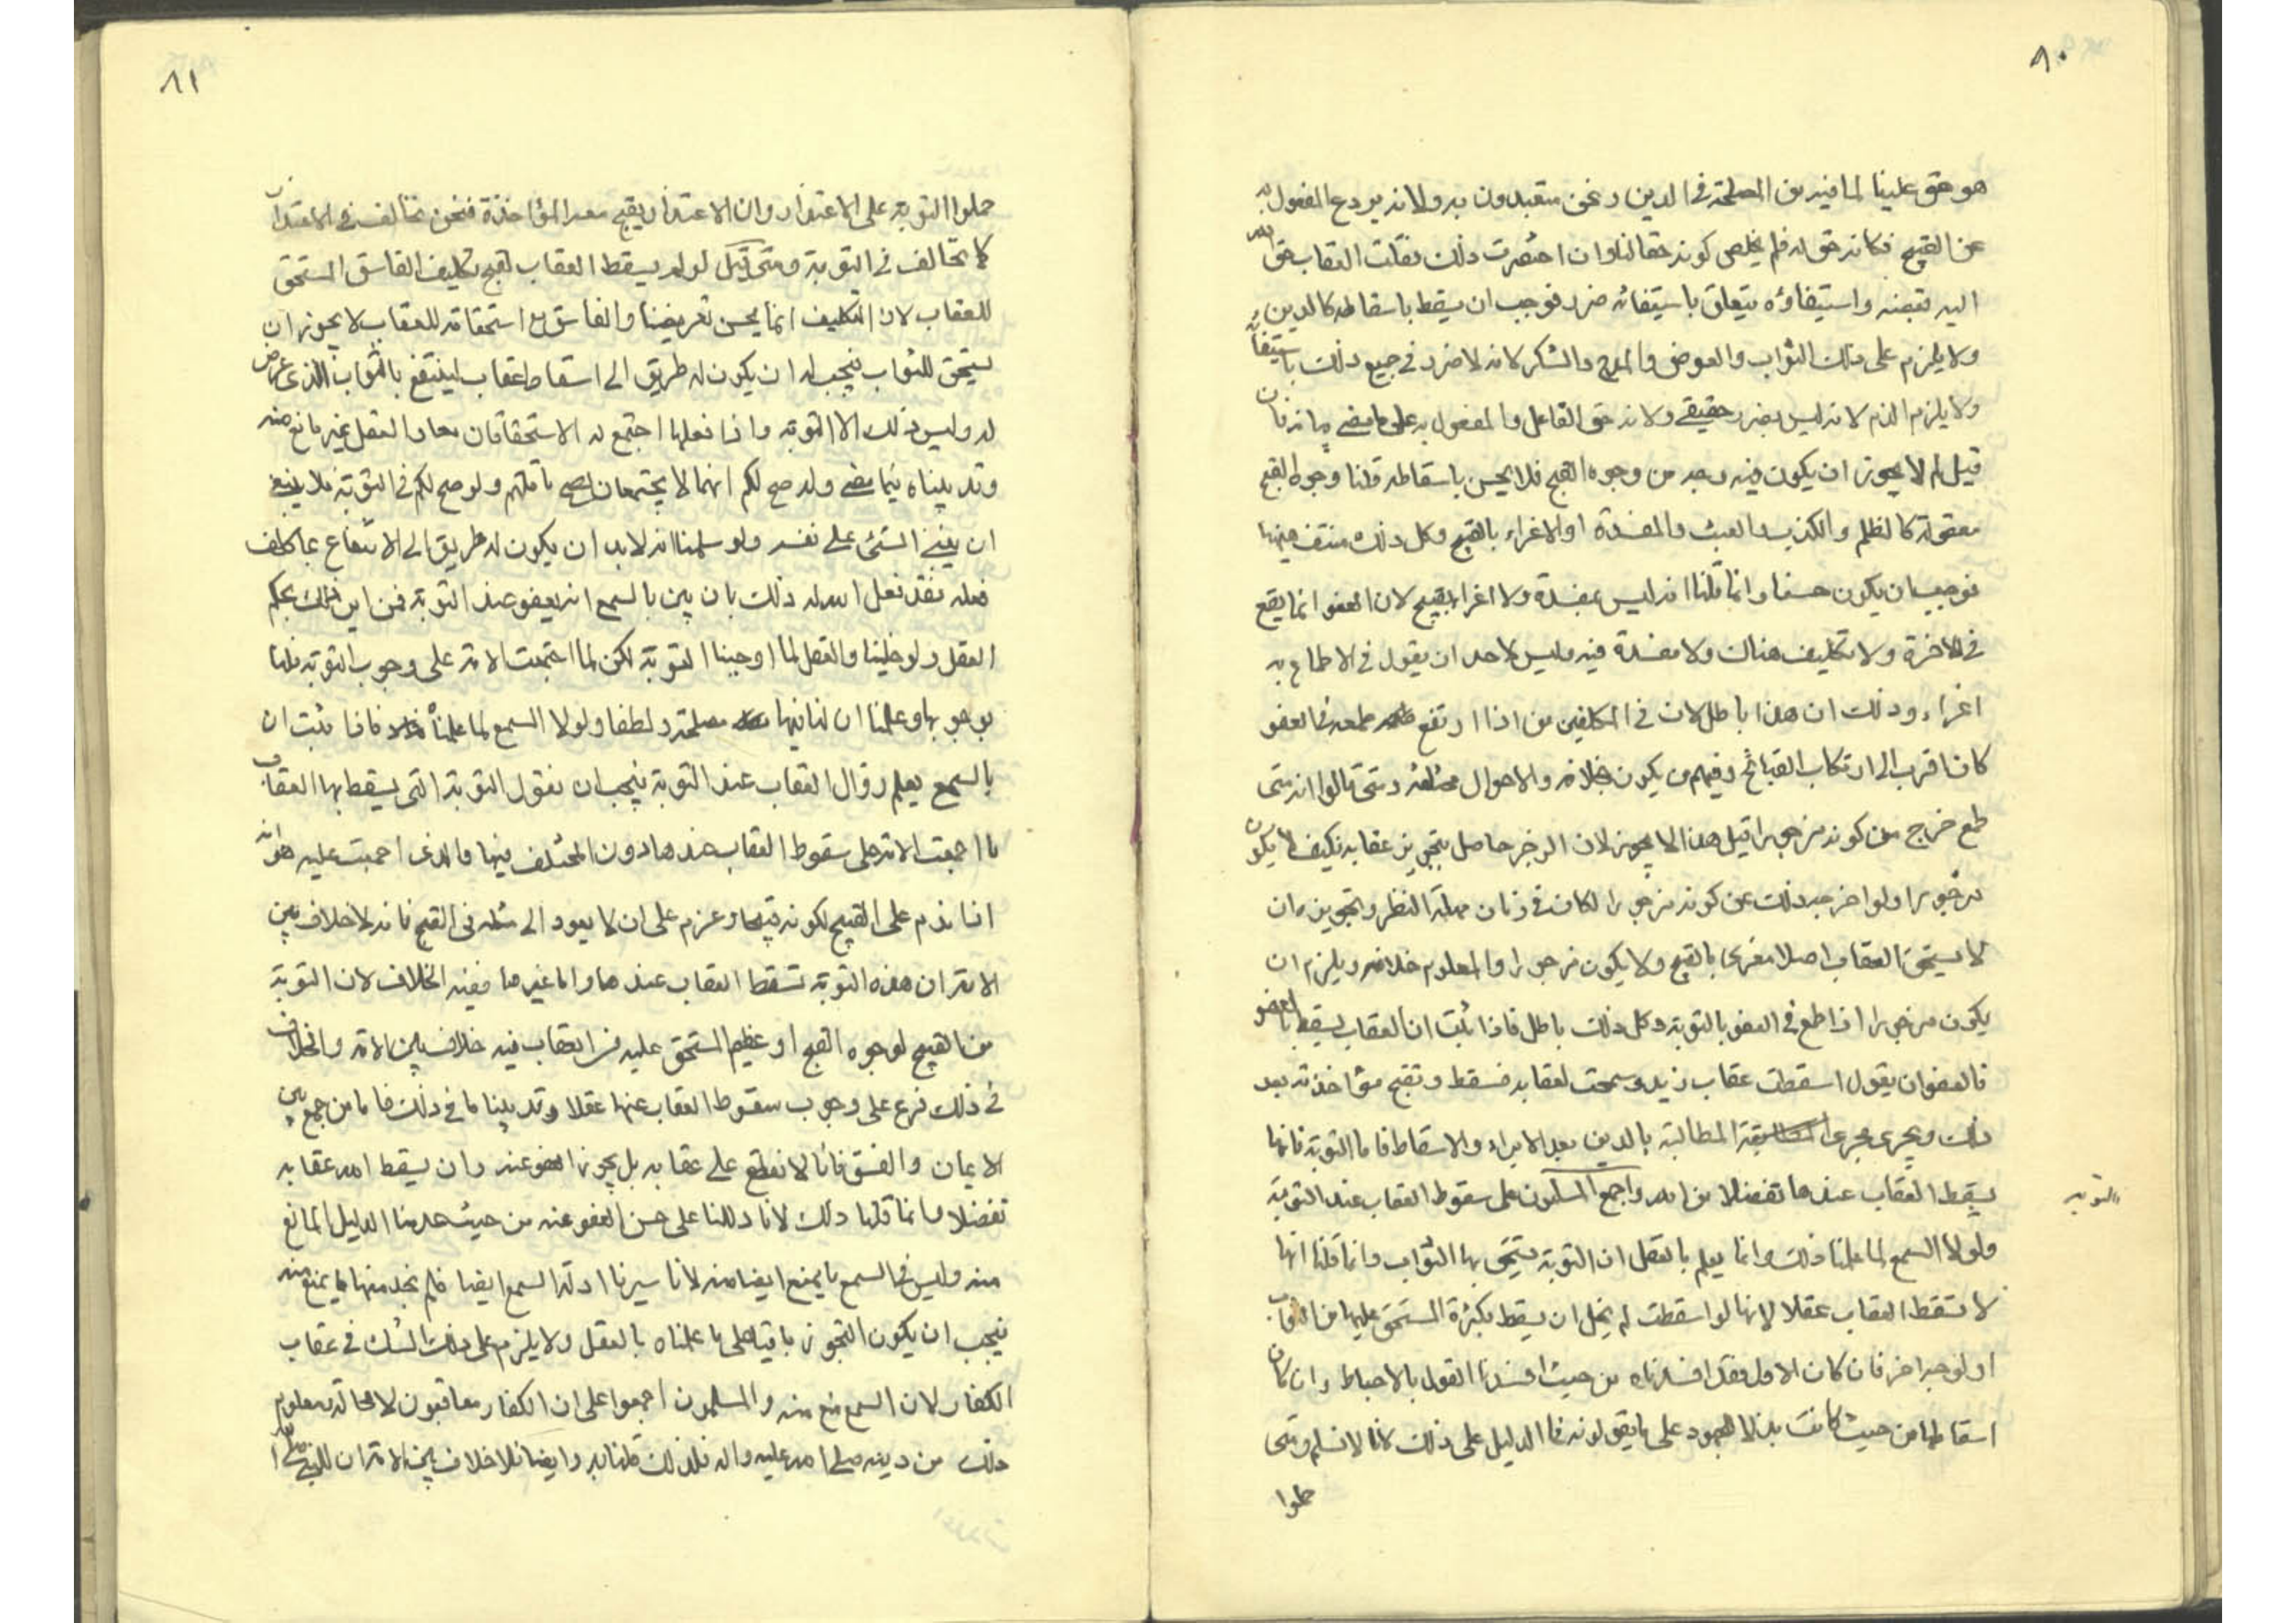 ٨٠
هو حق علينا لما فيه من المصلحة في الدين ونحن متعبدون به ولانه يردع المفعول به
عن القبيح فكانه حق له فلم يخلص كونه حقا لنا وان اختصرت ذلك فقلت العقاب حق لله
اليه تقبضه واستيفاؤه يتعلق باستيفائه ضرر فوجب ان يسقط باسقاطه كالدين
ولا يلزم على ذلك الثواب والعوض والمدح والشكر لانه لا ضرر في جميع ذلك باستيفائه
ولا يلزم الذم لانه ليس بضرر حقيقي ولانه حق الفاعل والمفعول به على ما مضى بيانه فان
قيل لم لا يجوز ان يكون فيه وجه من وجوه القبح فلا يحسن باسقاطه قلنا وجوه القبح
معقولة كالظلم والكذب والعبث والمفسدة او الاغراء بالقبيح وكل ذلك منتف هيهنا
فوجب ان يكون حسنا وانما قلنا انه ليس بمفسدة ولا اغراء بقبيح لان العفو انما يقع
في الاخرة ولا تكليف هناك ولا مفسدة فيه وليس لاحد ان يقول في الاطماع به
اغراء وذلك ان هذا باطل لان في المكلفين من اذا ارتفع طمعه في العفو
كان اقرب الى ارتكاب القبائح وفيهم من يكون بخلافه والاحوال مختلفة ومتى قالوا انه متى
طمع خرج من كونه مزجورا قيل هذا لا يجوز لان الزجر حاصل بتجويز عقابه فكيف لا يكون
مزجورا ولو اخرجه ذلك عن كونه مزجورا لكان في زمان مهلة النظر وتجويزه ان
لا يستحق العقاب اصلا مغرى بالقبح ولا يكون مزجورا والمعلوم خلافه ويلزم ان
يكون مزجورا اذا طمع في العفو بالتوبة وكل ذلك باطل فاذا ثبت ان العقاب يسقط بالعفو
فالعفو ان يقول اسقطت عقاب زيد وسمحت لعقابه فسقط وتقبح مؤاخذته بعد
ذلك ويجري مجرى المطالبة بالدين بعد الابراء والاسقاط فاما التوبة فانها
يسقط العقاب عندها تفضلا من الله واجمع المسلمون على سقوط العقاب عند التوبة
التوبه
ولولا السمع لما علمنا ذلك وانما يعلم بالعقل ان التوبة يستحق بها الثواب وانما قلنا انها
لا تسقط العقاب عقلا لانها لو اسقطت لم يخل ان يسقط بكثرة المستحق عليها من الثواب
او لوجه اخر فان كان الاول فقد افسدناه من حيث افسدنا القول بالاحباط وان كان
اسقاطها من حيث كانت بذلا للمجهود على ما يقولونه فما الدليل على ذلك لانا لا نسلم ومتى
حملوا
٨١
حملوا التوبة على الاعتذار وان الاعتذار يقبح معه المؤاخذة فنحن نخالف في الاعتذار
كما نخالف في التوبة ومتى قيل لو لم يسقط العقاب لقبح تكليف الفاسق المستحق
للعقاب لان التكليف انما يحسن تعريضا والفاسق مع استحقاقه للعقاب لا يجوز ان
يستحق للثواب فيجب له ان يكون له طريق الى اسقاط عقابه لينتفع بالثواب الذى عرض
له وليس ذلك الا التوبة واذا فعلها اجتمع له الاستحقاقان معا والعقل غير مانع منه
وقد بيناه فيما مضى ولو صح لكم انهما لا يجتمعان لصح ما قلتم ولو صح لكم في التوبة فلا ينبغي
ان يبنى الشئ على نفسه ولو سلمنا انه لا بد ان يكون له طريق الى الانتفاع بما كلف
فعله فقد فعل الله له ذلك بان بين بالسمع انه يعفو عند التوبة فمن اين ذلك بحكم
العقل ولو خلينا والعقل لما اوجبنا التوبة لكن لما اجتمعت الامة على وجوب التوبة قلنا
بوجوبها وعلمنا ان لنا فيها مصلحة ولطفا ولولا السمع لما علمناه فاذا ثبت ان
بالسمع يعلم زوال العقاب عند التوبة فيجب ان نقول التوبة التى يسقط بها العقاب
ما اجمعت الامة على سقوط العقاب عندها دون المختلف فيها والذى اجمعت عليه هو انه
اذا ندم على القبيح لكونه قبيحا وعزم على ان لا يعود الى مثله في القبح فانه لا خلاف بين
الامة ان هذه التوبة تسقط العقاب عندها واما غيرها ففيه الخلاف لان التوبة
من القبيح لوجوه القبح او عظم المستحق عليه من العقاب فيه خلاف بين الامة والخلاف
في ذلك فرع على وجوب سقوط العقاب عنها عقلا وقد بينا ما في ذلك فاما من جمع بين
الايمان والفسق فانا لا نقطع على عقابه بل يجوز العفو عنه وان يسقط الله عقابه
تفضلا وانما قلنا ذلك لانا دللنا على حسن العفو عنه من حيث عدمنا الدليل المانع
منه وليس في السمع ما يمنع ايضا منه لانا سبرنا ادلة السمع ايضا فلم نجد منها ما يمنع منه
فيجب ان يكون التجوز باقيا على ما علمناه بالعقل ولا يلزم على ذلك الشك في عقاب
الكفار لان السمع منع منه والمسلمون اجمعوا على ان الكفار معاقبون لا محالة ومعلوم
ذلك من دينه صلى الله عليه واله فلذلك قلنا به وايضا فلا خلاف بين الامة ان للنبي